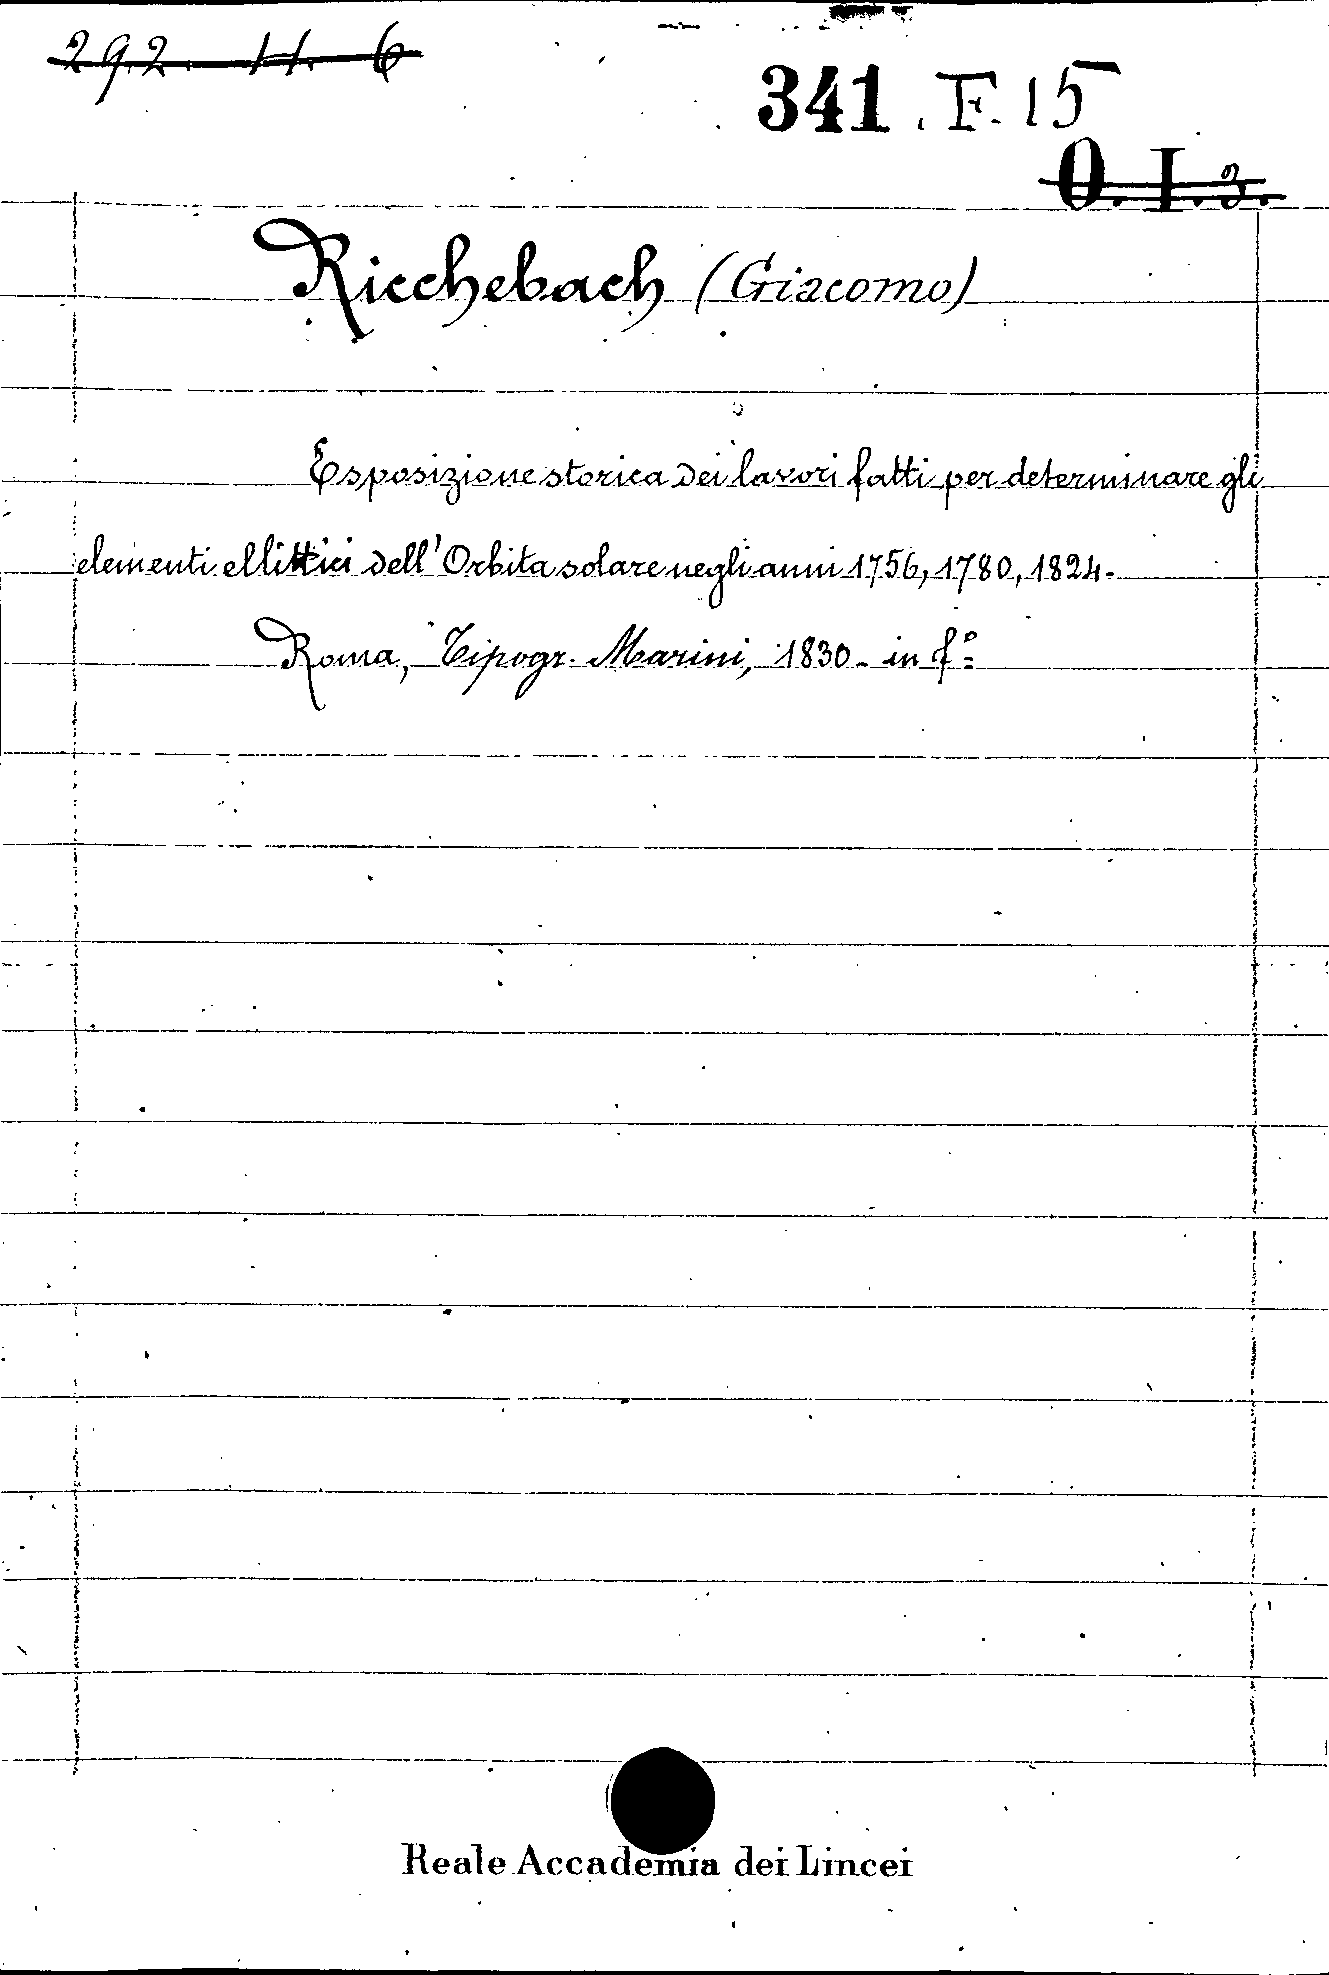 292. H. 6
341. F. 15
O. I. 3.
Ricchebach (Giacomo)
Esposizione storica dei lavori fatti per determinare gli
elementi ellittici dell'Orbita solare negli anni 1756, 1780, 1824.
Roma, Tipogr. Marini, 1830. in fº
Reale Accademia dei Lincei